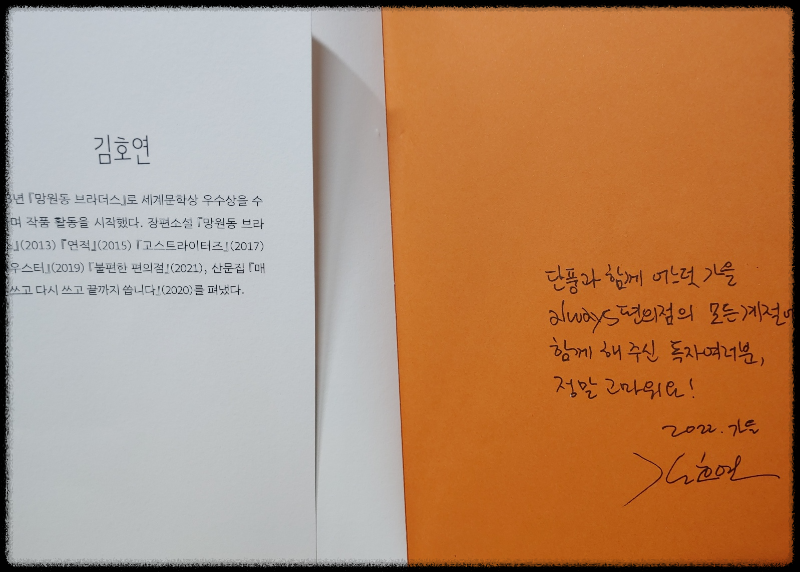 김호연
3년 『망원동 브라더스』로 세계문학상 우수상을 수
며 작품 활동을 시작했다. 장편소설 『망원동 브라
』(2013) 『연적』(2015) 『고스트라이터즈』(2017)
우스터』(2019) 『불편한 편의점』(2021), 산문집 『매
쓰고 다시 쓰고 끝까지 씁니다』(2020)를 펴냈다.
단풍과 함께 어느덧 가을
always편의점의 모든 계절에
함께 해 주신 독자여러분,
정말 고마워요!
2022. 가을
김호연